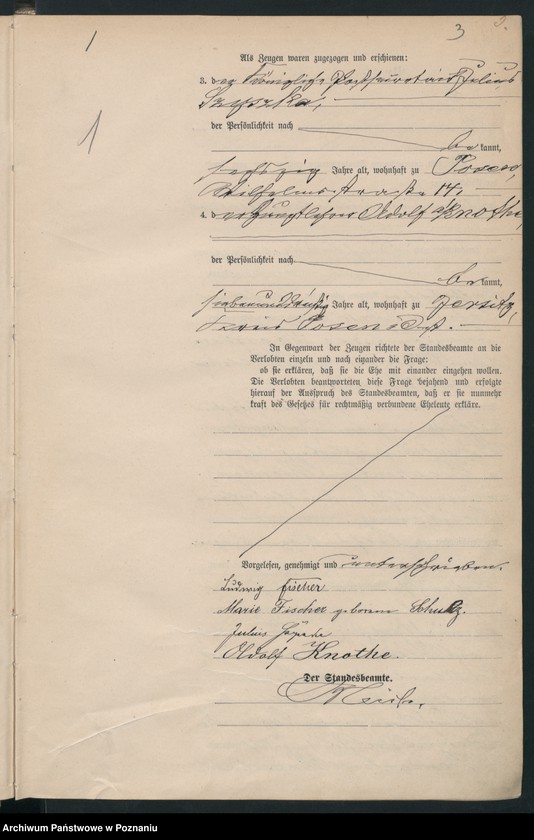 1
3
3.
1
Als Zeugen waren zugezogen und erschienen:
3. der Königliche Postsekretair Julius
der Persönlichkeit nach
bekannt,
sechszig Jahre alt, wohnhaft zu Posen,
Wilhelmsstraße 14.
4. der Adolf Knothe,
der Persönlichkeit nach
bekannt,
siebenunddreißig Jahre alt, wohnhaft zu Jersitz,
Kreis Posen Ost.
In Gegenwart der Zeugen richtete der Standesbeamte an die
Verlobten einzeln und nach einander die Frage:
ob sie erklären, daß sie die Ehe mit einander eingehen wollen.
Die Verlobten beantworteten diese Frage bejahend und erfolgte
hierauf der Ausspruch des Standesbeamten, daß er sie nunmehr
kraft des Gesetzes für rechtmäßig verbundene Eheleute erkläre.
Vorgelesen, genehmigt und unterschrieben.
Ludwig Fischer
Marie Fischer geborene Schulz.
Julius
Adolf Knothe.
Der Standesbeamte.
Archiwum Państwowe w Poznaniu